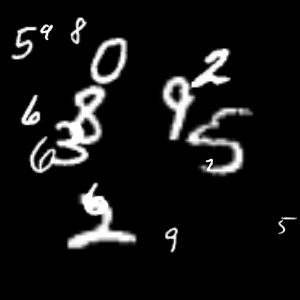 5 9 8
0 2
6 8 9
6 3 5 2
6
2 9 5